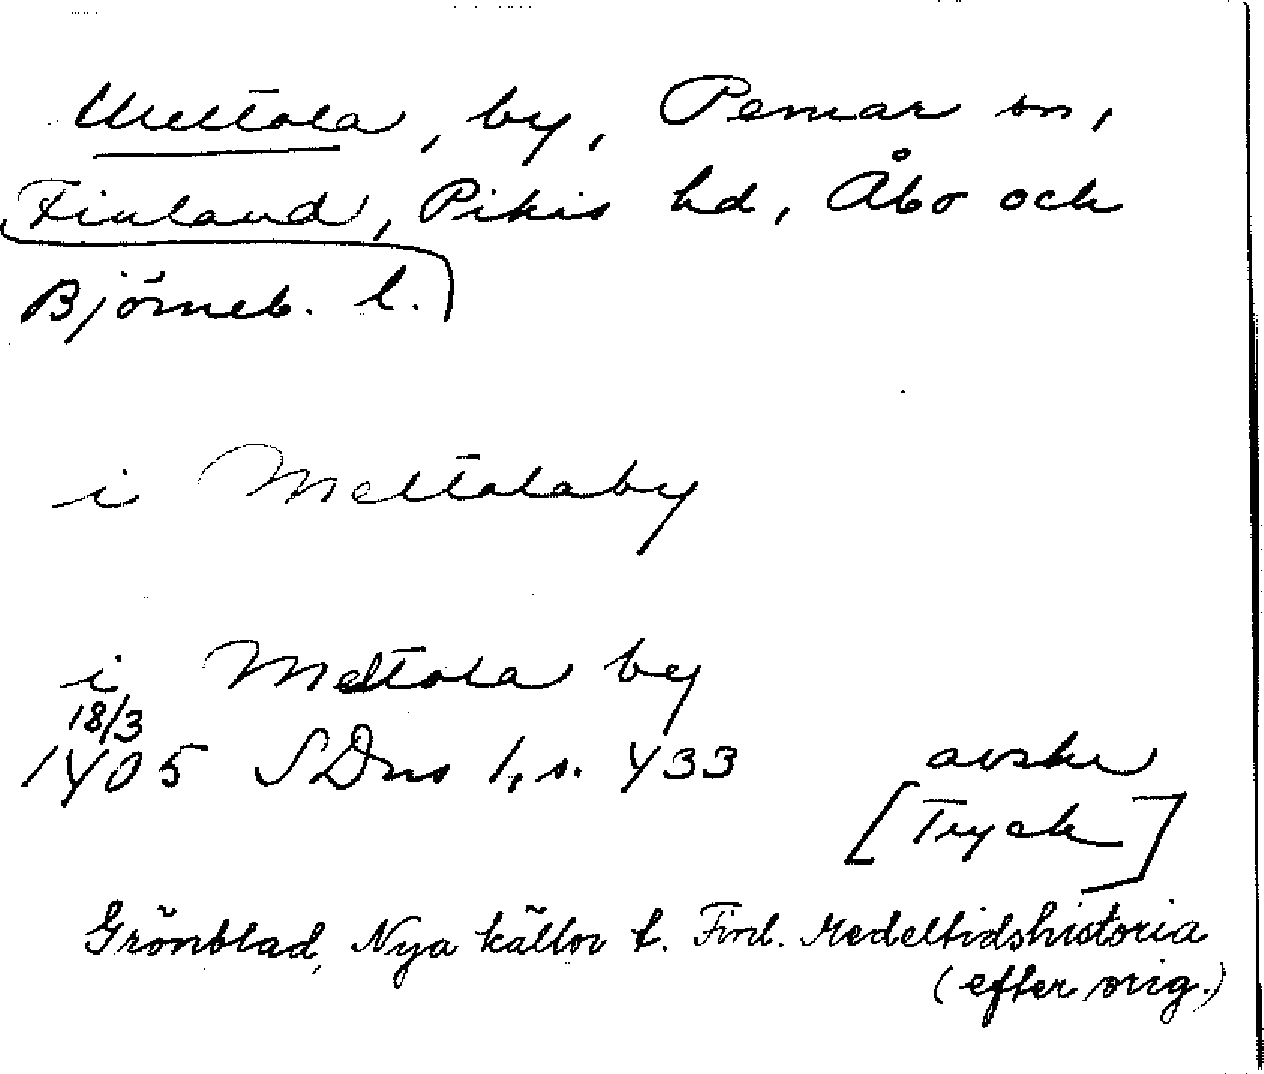 Meltola, by, Pemar sn,
Finland, Pikis hd, Åbo och
Björneb. l.
i Meltolaby
i Meltola by
18/3
1405 SDns 1, s. 433 avskr
[Tryck]
Grönblad, Nya källor t. Finl. Medeltidshistoria
(efter orig.)